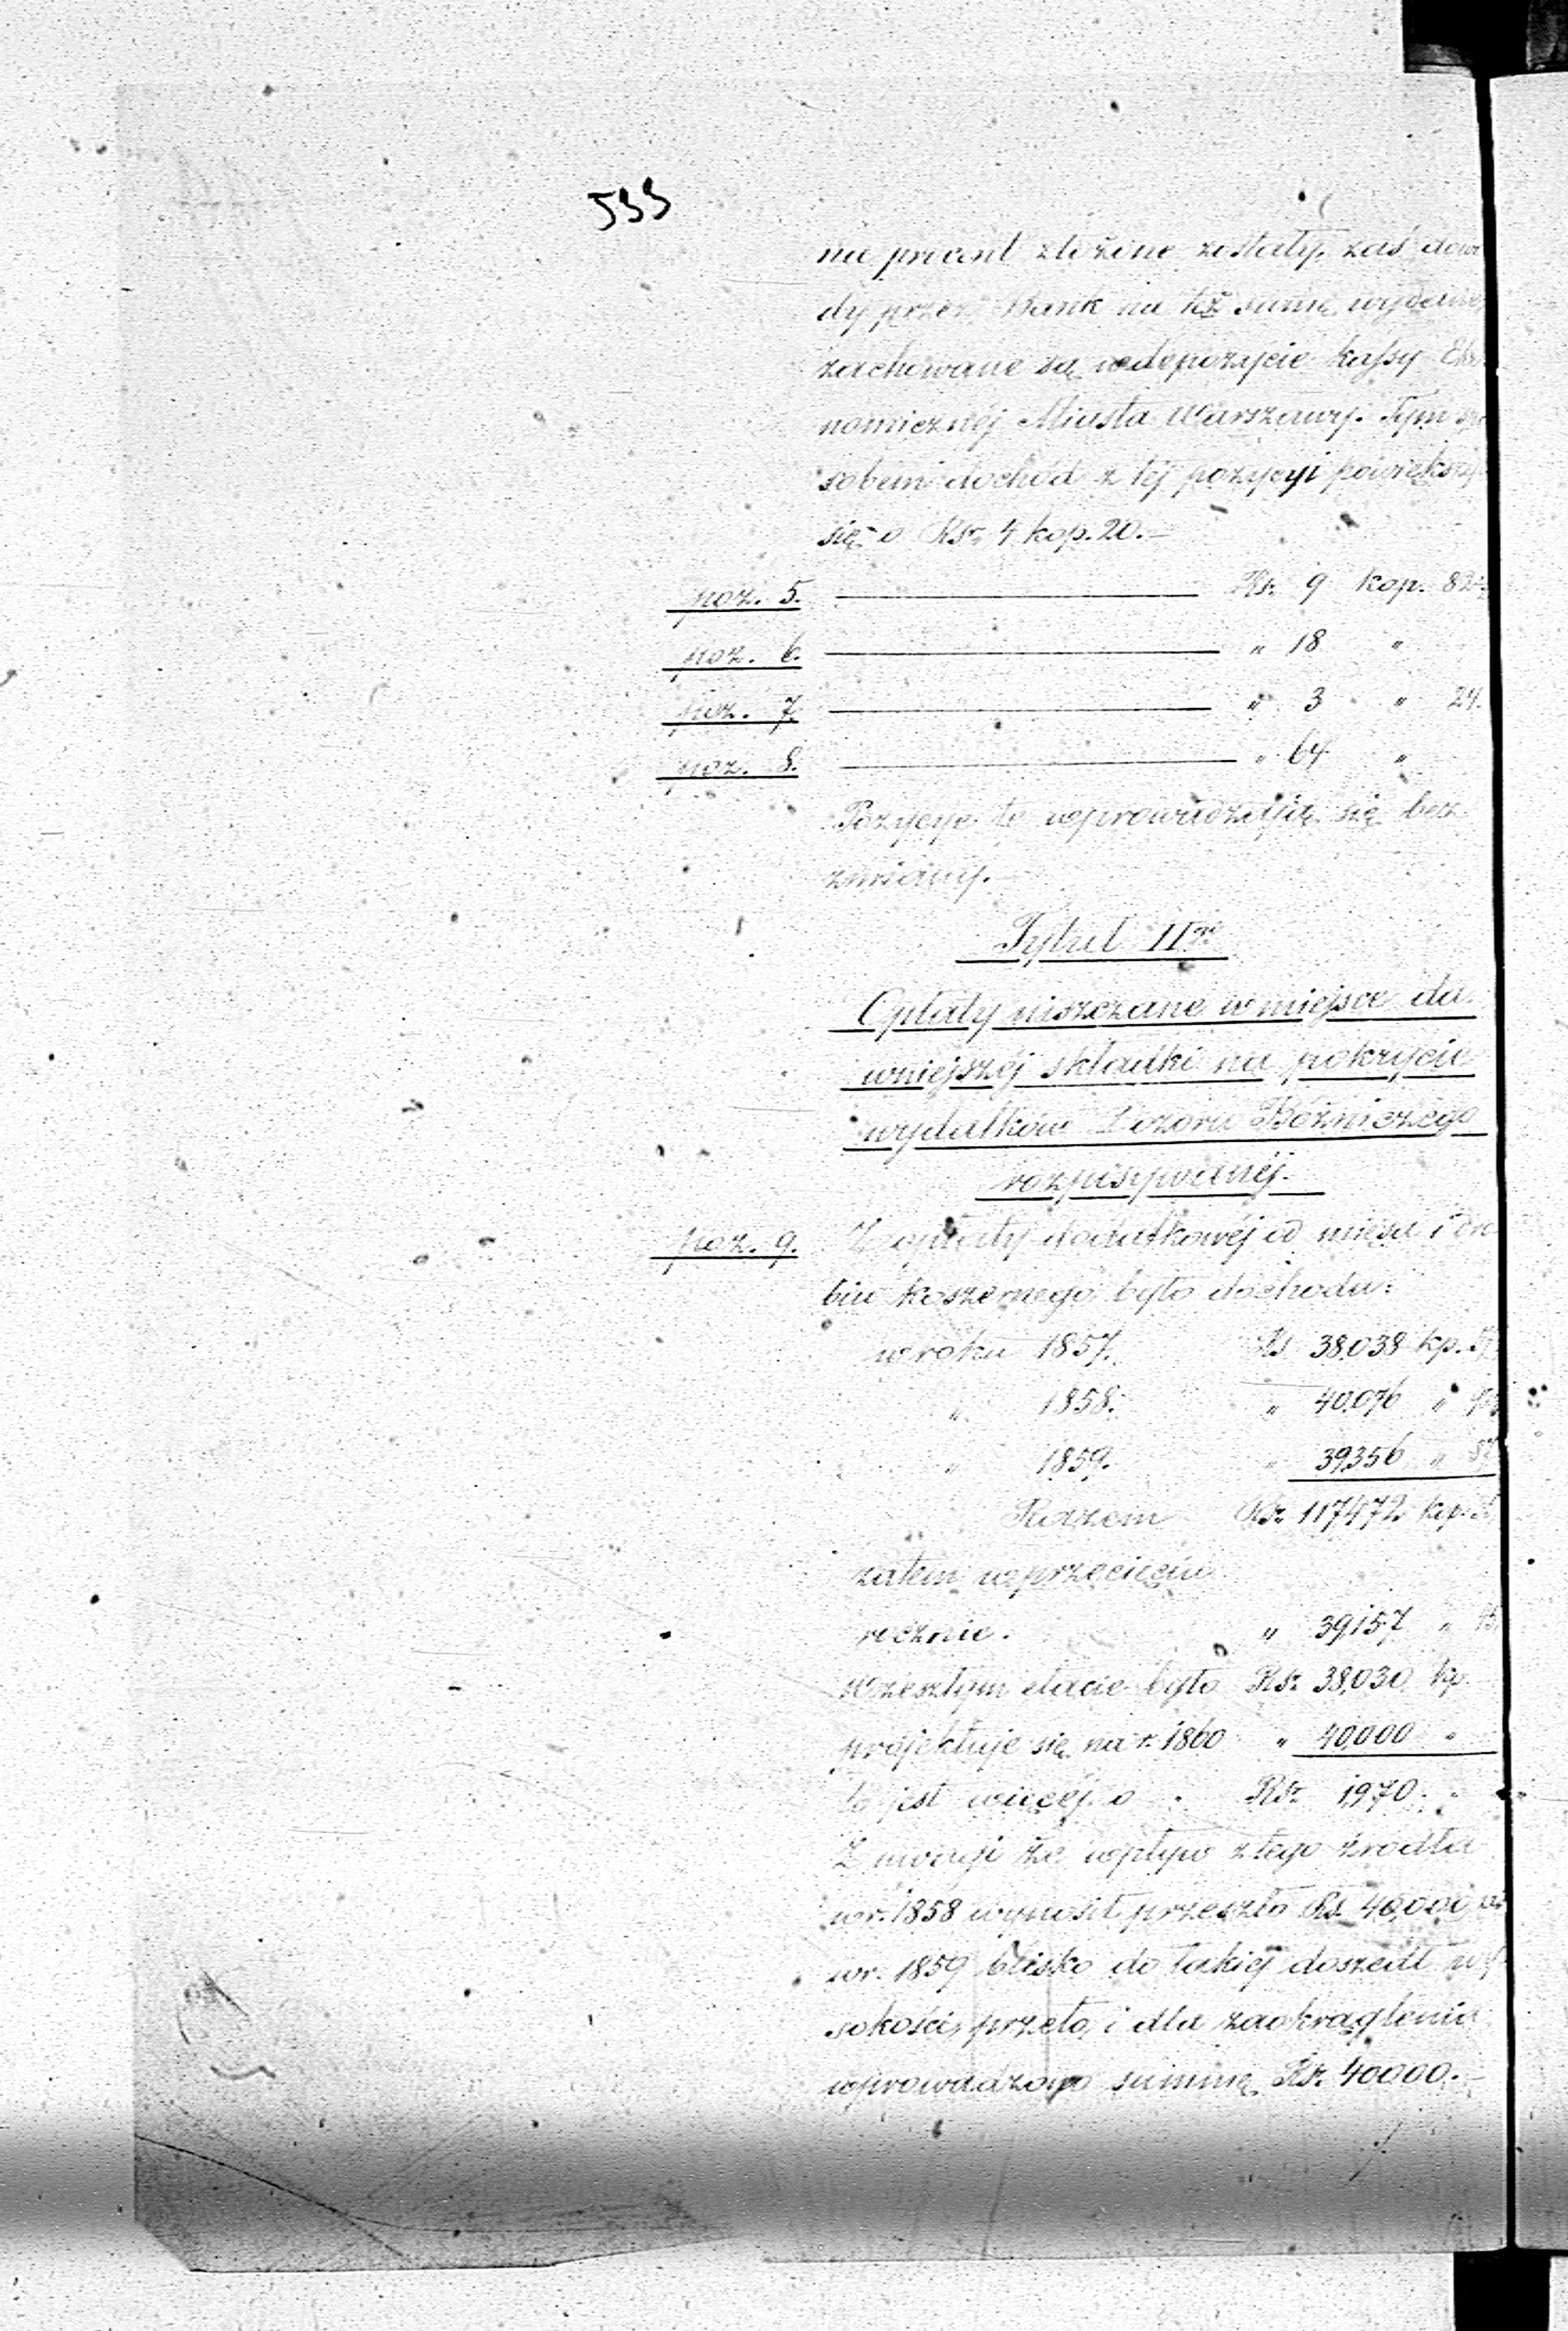 533
nie procent złożone zostały, zaś dowo
dy przez Bank na też sumę wydane,
zachowane są w depozycie kassy Eko
nomicznéj Miasta Warszawy. Tym spo
sobem dochód z téj pozycyi powiększył
się o Rsr. 4 kop. 20.—
poz. 5. Rsr. 9 kop. 82
poz. 6. „ 18 „
poz. 7. „ 3 „ 24.
poz. 8. „ 64 „
Pozycye te wprowadzają się bez
zmiany.
Tytuł II
Opłaty uiszczane w miejsce da
wniejszéj składki na pokrycie
wydatków Dozoru Bóżniczego
rozpisywanéj.
poz. 9. Z opłaty dodatkowéj od mięsa i dro
biu koszernego było dochodu:
w roku 1857. Rs. 38,038 kp.
„ 1858. „ 40,076 „
„ 1859. „ 39,356 „
Razem Rsr. 117,472 kop.
zatem w przecięciu
rocznie. „ 39,157 „
W zeszłym etacie było Rsr. 38,030 kp.
projektuje się na r. 1860 „ 40,000 „
to jest więcéj o Rsr. 1,970. „
Z uwagi że wpływ z tego źródła
w r. 1858 wynosił przeszło Rs. 40,000
w r. 1859 blisko do takiéj doszedł wy
sokości, przeto i dla zaokrąglenia
wprowadzono summę Rsr. 40000.—